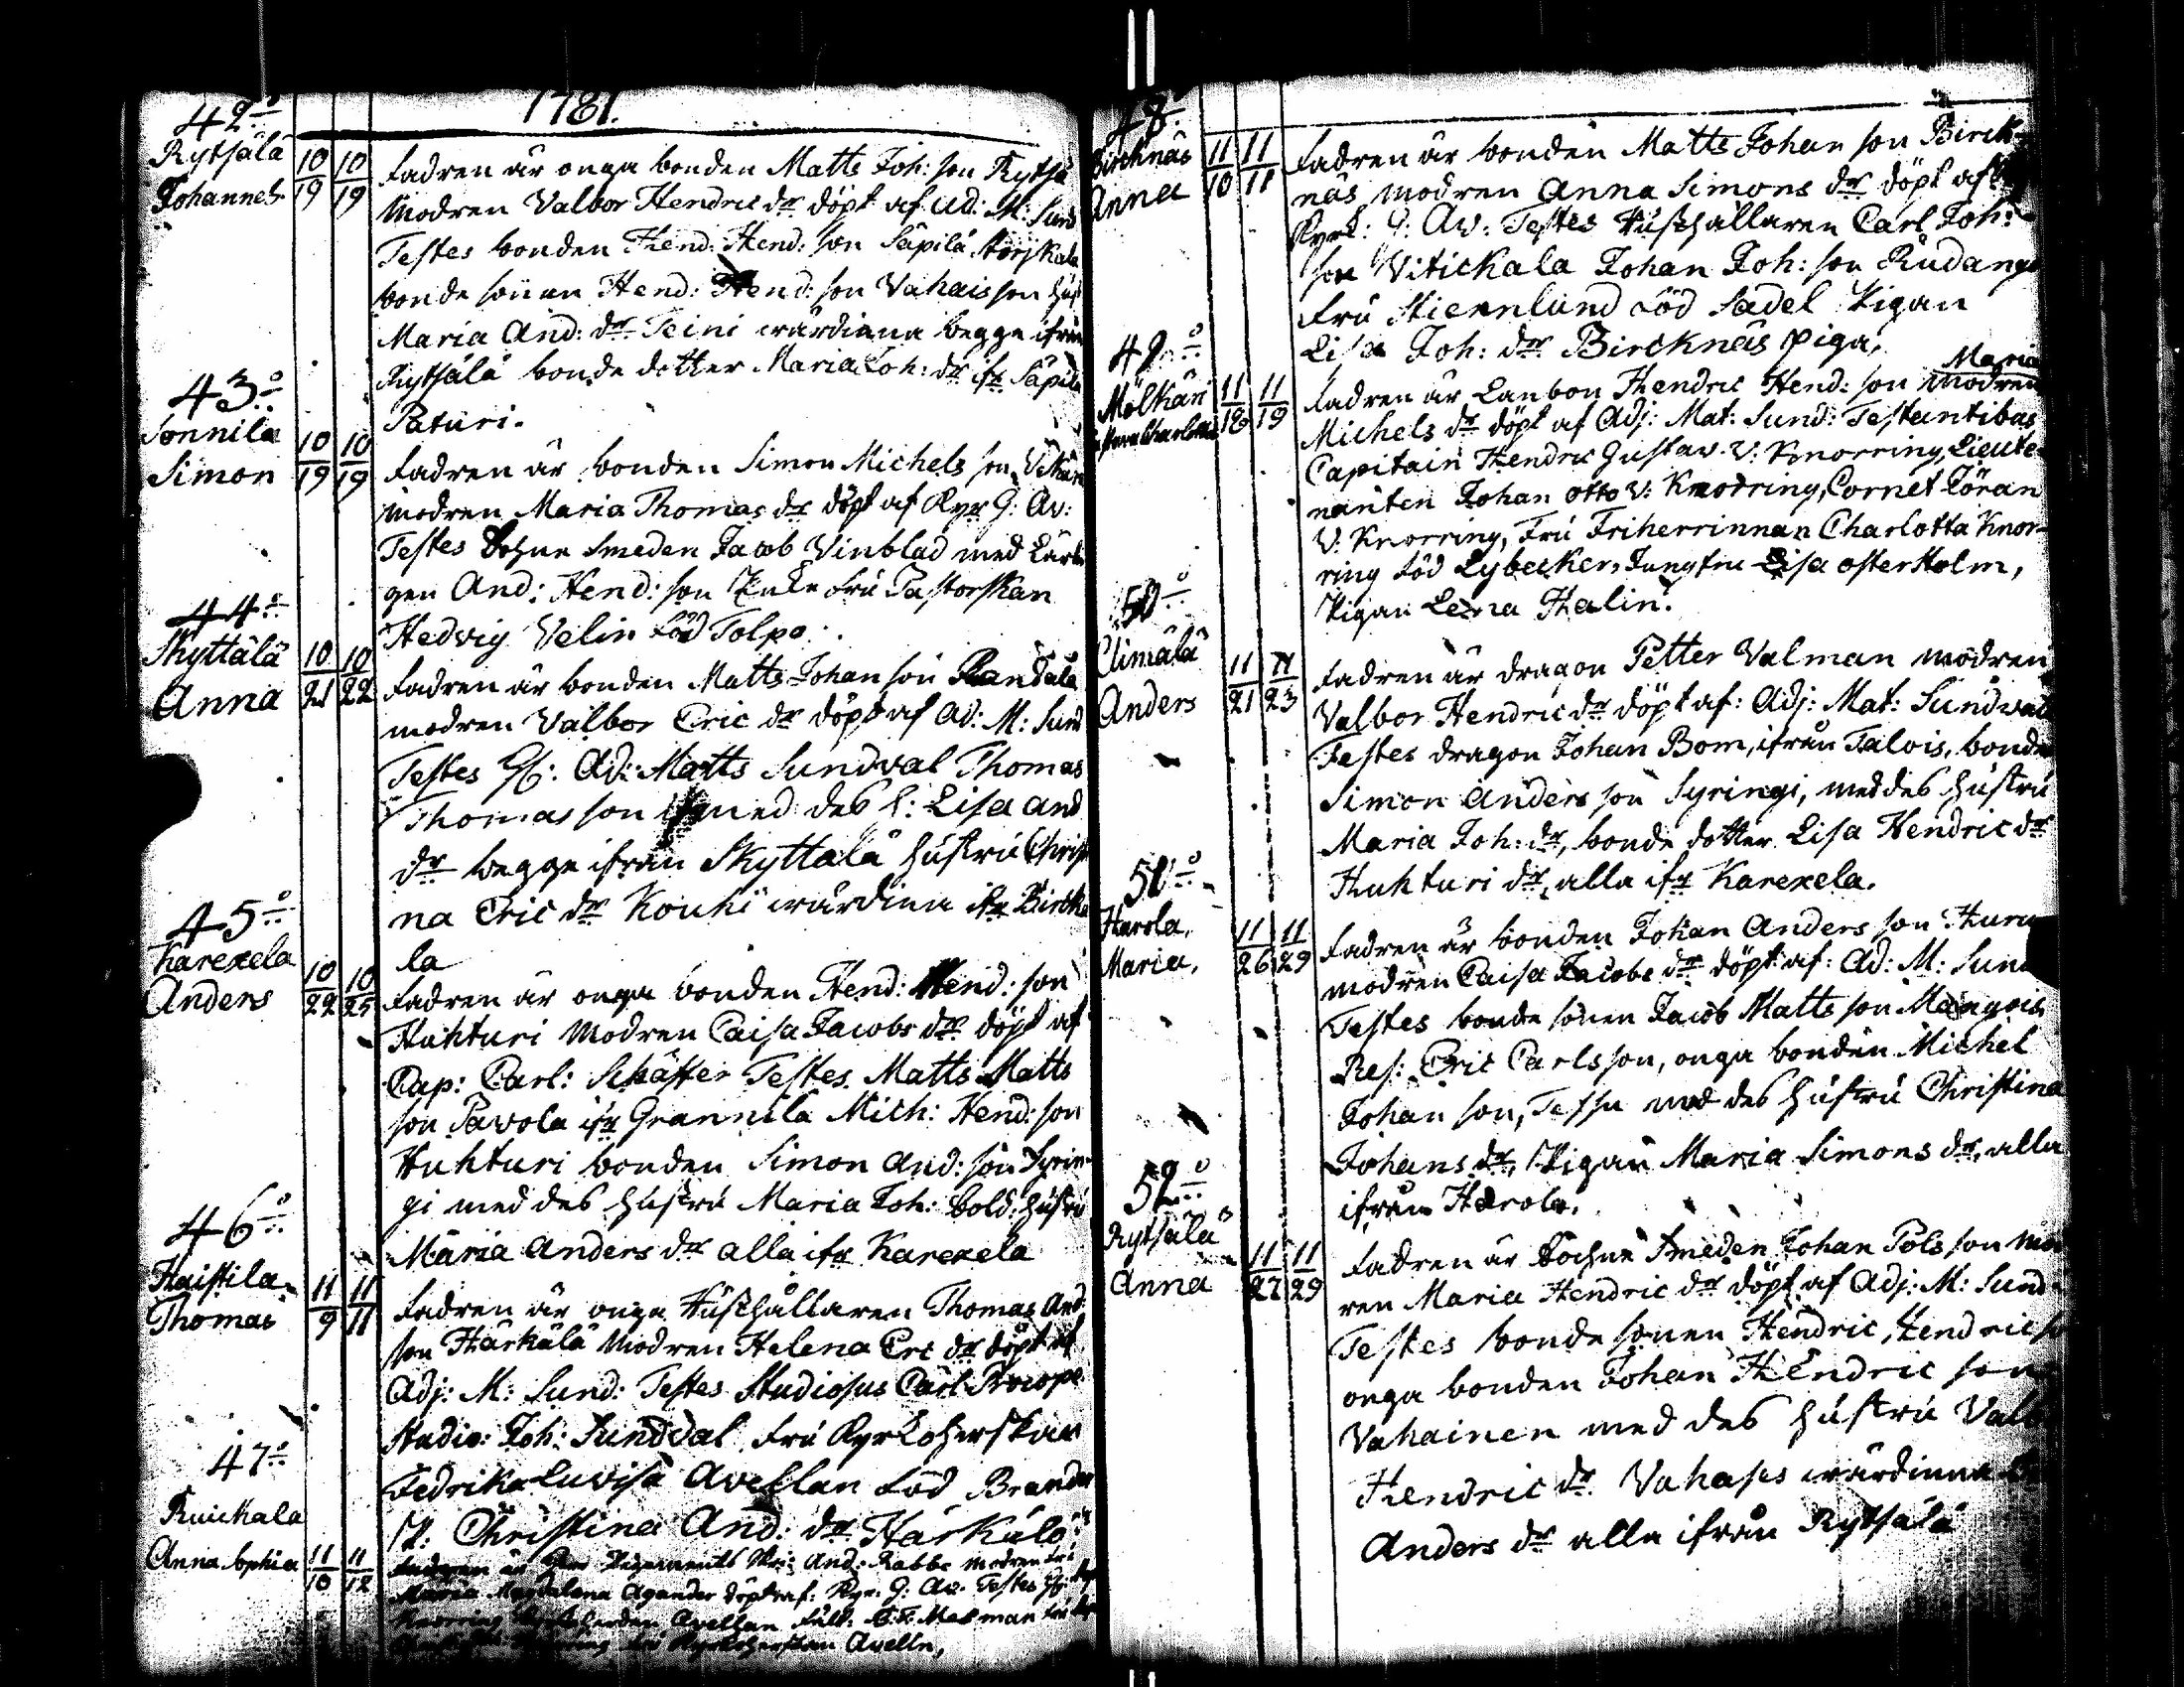 1781.
42
Rytsälä
Johannes
10/19 10/19
Fadren är onga bonden Matts Joh: son Rytsä
Modren Valbor Hendric dr döpt af Ad: M: Sund
Testes bonden Hend: Hend: son Säpilä
bonde sonen Hend: Hend: son Vahais son
Maria And: dr Teini wärdinna begge ifrån
Rytsälä bonde dotter Maria Joh: dr ifr Säpilä
Paturi.
43
Sonnila
Simon
10/19 10/19
Fadren är bonden Simon Michels son
modren Maria Thomas dr döpt af Kyr G: Av:
Testes Sohne Smeden Jacob Vinblad med
gen And: Hend: son Fru Pastorskan
Hedvig Velin Föd Tolpo.
44
Skyttälä
Anna
10/21 10/22
Fadren är bonden Matts Johan son
modren Valbor Eric dr döpt af Ad: M: Sund
Testes H: Ad: Matts Sundval Thomas
Thomas son med des h: Lisa And
dr begge ifrån Skyttälä hustru Christ
na Eric dr Kouhi wärdinn ifr Birck
la
45
Karexela
Anders
10/22 10/25
Fadren är onga bonden Hend: Hend: son
Huhturi Modren Caisa Jacobs dr döpt af
Cap: Carl: Schäffer Testes Matts Matts
son Pavola ifr Grannila Mich: Hend: son
Huhturi bonden Simon And: son Syrin
gi med des hustru Maria Joh: Sold: hustru
Maria Anders dr alla ifr Karexela
46
Haistila
Thomas
11/9 11/11
Fadren är onga Hushållaren Thomas And
son Härkälä Modren Helena Eric dr döpt af
Adj: M: Sund: Testes Studiosus Carl Procope
Studio: Joh: Sundval Fru Kyrkoherskan
Fedrika Luvisa Avellan Föd Brander
P: Christina And: dr Härkälä
47
Ruickala
Anna Sophia
11/10 11/12
Fadren är Regements Skri: And: Rabbe modren Fru
Maria Magdalena Agander döpt af: Kyr: G: Av. Testes
Knorring Avellan Masman
Avelln,
48
Bircknäs
Anna
11/10 11/11
Fadren är bonden Matts Johan son Birck-
näs modren Anna Simons dr döpt af
Kyrk: G: Av: Testes Hushållaren Carl Joh:
son Vitickala Johan Joh: son Rudangi
Fru Stiernlund Föd Sadel Pigan
Lisa Joh: dr Bircknäs piga,
49
Mölkäri
11/18 11/19
Fadren är Lanbon Hendric Hend: son modren Maria
Michels dr döpt af Adj: Mat: Sund: Testantibas
Capitain Hendric Gustav. V. Knorring, Lieute-
nanten Johan Otto V: Knodring, Cornet Göran
V. Knorring, Fru Friherrinnan Charlotta Knor-
ring Föd Lybecker, Jungfru Lisa Osterholm,
Pigan Lena Thalin.
50
Climälä
Anders
11/21 11/23
Fadren är dragon Petter Valman modren
Valbor Hendric dr döpt af: Adj: Mat: Sundval
Testes dragon Johan Bom, ifrån Talois, bonde
Simon Anders son Syringi, med des hustru
Maria Joh: dr, bonde dotter Lisa Hendric dr
Huhturi dr, alla ifr Karexela.
51
Harola,
Maria,
11/26 11/29
Fadren är bonden Johan Anders son
modren Caisa Jacobs dr döpt af: Ad: M: Sund
Testes bonde sonen Jacob Matts son Mangois
Res: Eric Carlsson, onga bonden Michel
Johan son, Tessu med des hustru Christina
Johans dr, Pigan Maria Simons dr, alla
ifrån Harola.
52
Rytsälä
Anna
11/27 11/29
Fadren är Sochne Smeden Johan Pols son Mo
ren Maria Hendric dr döpt af Adj: M: Sund
Testes bonde sonen Hendric, Hendric so
onga bonden Johan Hendric son
Vahainen med des hustru Valb
Hendric dr. Vahases wärdinna
Anders dr alla ifrån Rytsälä